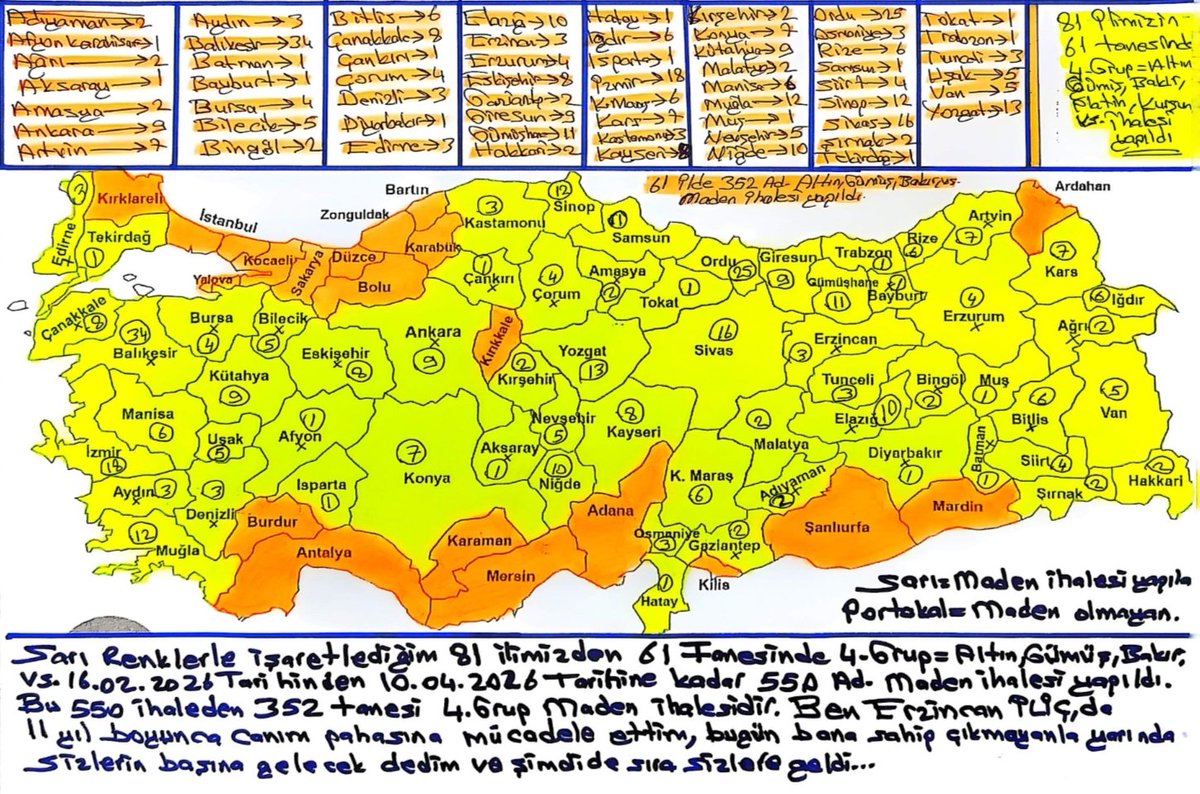 Adıyaman→2
Afyon karahisar→1
Ağrı→2
Aksaray→1
Amasya→2
Ankara→9
Artvin→7
Aydın→3
Balıkesir→34
Batman→1
Bayburt→1
Bursa→4
Bilecik→5
Bingöl→2
Bitlis→6
Çanakkale→8
Çankırı→1
Çorum→4
Denizli→3
Diyabakır→1
Edirne→3
Elazığ→10
Erzincan→3
Erzurum→4
Eskişehir→8
Gaziantep→2
Giresun→9
Gümüşhane→11
Hakkari→2
Hatay→1
Iğdır→6
Isparta→1
İzmir→18
K.Maraş→6
Kars→7
Kastamonu→3
Kayseri→8
Kırşehir→2
Konya→7
Kütahya→9
Malatya→2
Manisa→6
Muğla→12
Muş→1
Nevşehir→5
Niğde→10
Ordu→25
Osmaniye→3
Rize→6
Samsun→1
Siirt→4
Sinop→12
Sivas→16
Şırnak→2
Tekirdağ→1
Tokat→1
Trabzon→1
Tunceli→3
Uşak→5
Van→5
Yozgat→13
81 İlimizin
61 tanesinde
4.Grup=Altın
Gümüş, Bakır,
Platin, Kurşun
vs. İhalesi
yapıldı
61 İlde 352 Ad. Altın, Gümüş, Bakır, vs.
Maden İhalesi yapıldı.
Kırklareli
İstanbul
Edirne
Tekirdağ 1
Kocaeli
Yalova
Sakarya
Düzce
Bolu
Zonguldak
Bartın
Karabük
Kastamonu 3
Sinop 12
Samsun 1
Çankırı 1
Çorum 4
Amasya 2
Tokat 1
Ordu 25
Giresun 9
Gümüşhane 11
Trabzon 1
Bayburt 1
Rize 6
Artvin 7
Ardahan
Kars 7
Iğdır 6
Ağrı 2
Erzurum 4
Erzincan 3
Çanakkale 8
Balıkesir 34
Bursa 4
Bilecik 5
Eskişehir 8
Ankara 9
Kırıkkale
Kırşehir 2
Yozgat 13
Sivas 16
Kütahya 9
Manisa 6
Uşak 5
Afyon 1
İzmir 18
Aydın 3
Denizli 3
Muğla 12
Isparta 1
Burdur
Antalya
Konya 7
Aksaray 1
Nevşehir 5
Niğde 10
Kayseri 8
Karaman
Mersin
Adana
Osmaniye 3
Hatay 1
K. Maraş 6
Gaziantep 2
Kilis
Adıyaman 2
Malatya 2
Şanlıurfa
Tunceli 3
Elazığ 10
Bingöl 2
Muş 1
Bitlis 6
Van 5
Diyarbakır 1
Batman 1
Mardin
Siirt 4
Şırnak 2
Hakkari 2
Sarı=Maden ihalesi yapıla
Portakal=Maden olmayan.
Sarı Renklerle işaretlediğim 81 ilimizden 61 Tanesinde 4.Grup=Altın, Gümüş, Bakır,
vs. 16.02.2026 Tarihinden 10.04.2026 Tarihine kadar 550 Ad. Maden ihalesi yapıldı.
Bu 550 ihaleden 352 tanesi 4.Grup Maden İhalesidir. Ben Erzincan İLİÇ,de
11 yıl boyunca canım pahasına mücadele ettim, bugün bana sahip çıkmayanla yarında
sizlerin başına gelecek dedim ve şimdide sıra sizlere geldi...